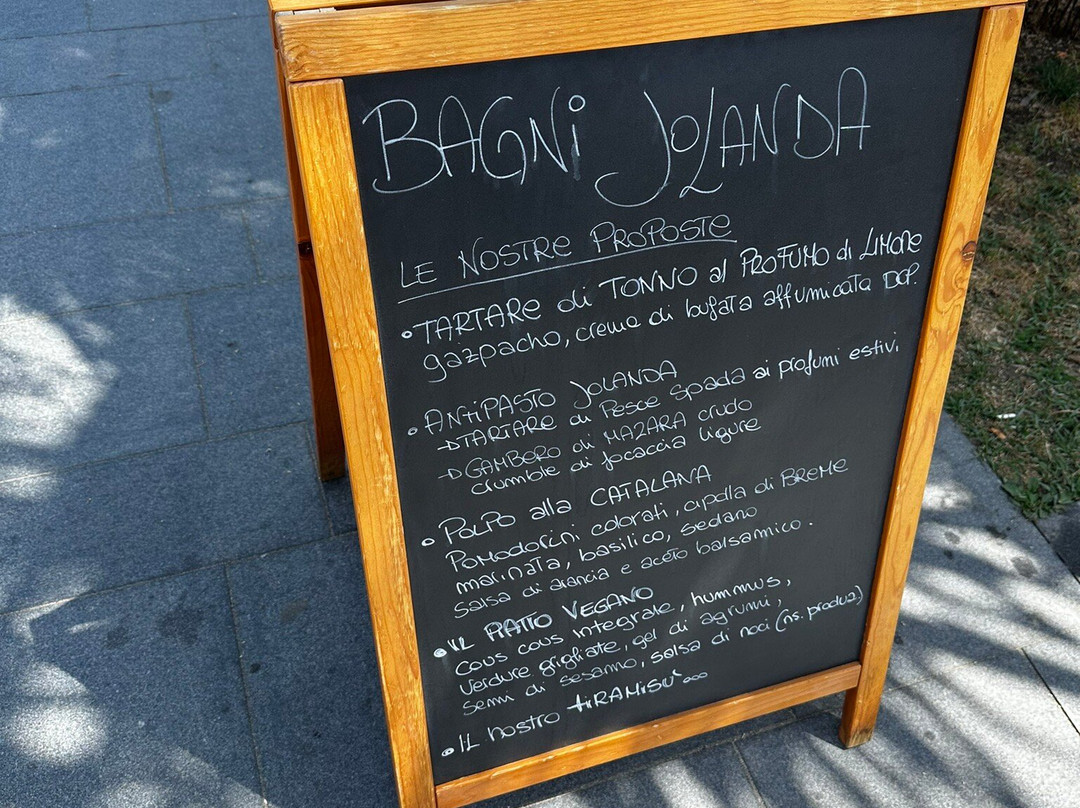 BAGNi JOLANDA
LE NOSTRe PROPOSTe
• TARTARe di TONNO al PROFUMO di LIMONe
gazpacho, crema di bufala affumicata DOP.
• ANTiPASTO JOLANDA
→ TARTARe di Pesce Spada ai profumi estivi
→ GAMBERO di MAZARA crudo
crumble di focaccia ligure
• POLPO alla CATALANA
POMODORiNi colorati, cipolla di BReMe
marinata, basilico, sedano
Salsa di arancia e aceto balsamico.
• iL PiATTO VEGANO
cous cous integrale, hummus,
Verdure grigliate, gel di agrumi,
semi di sesamo, salsa di noci (ns. produz)
• IL nostro tiRAMiSU'...